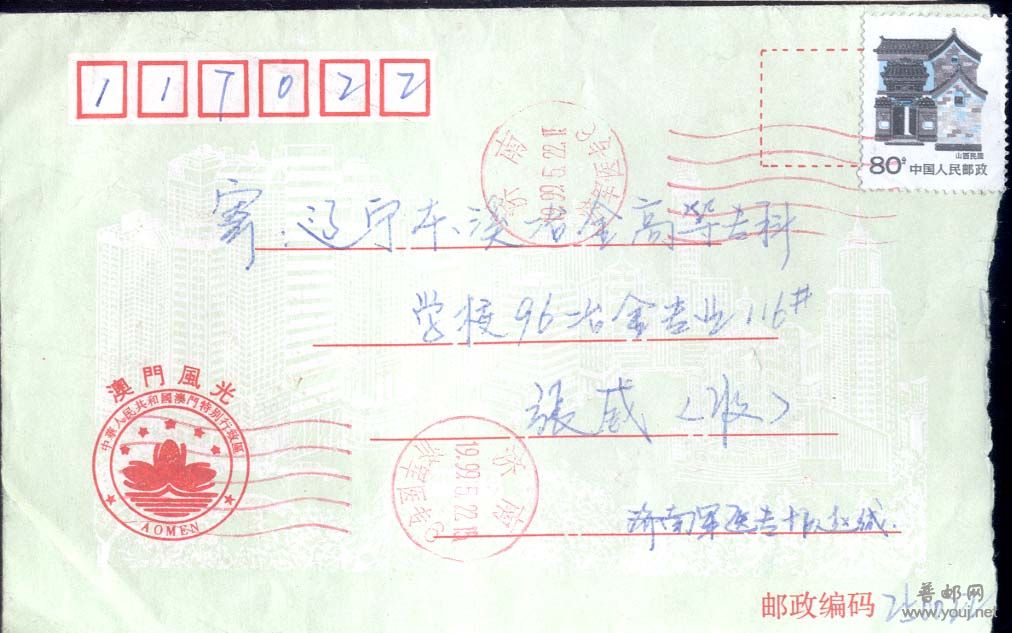 117022
山西民居
80分 中国人民邮政
济南
1999.5.22.18
寄:辽宁本溪冶金高等专科
学校96冶金专业116#
張威(收)
澳門風光
中華人民共和國澳門特別行政區
AOMEN
济南
1999.5.22.18
济南军医专十队赵
邮政编码
普邮网
www.youj.net